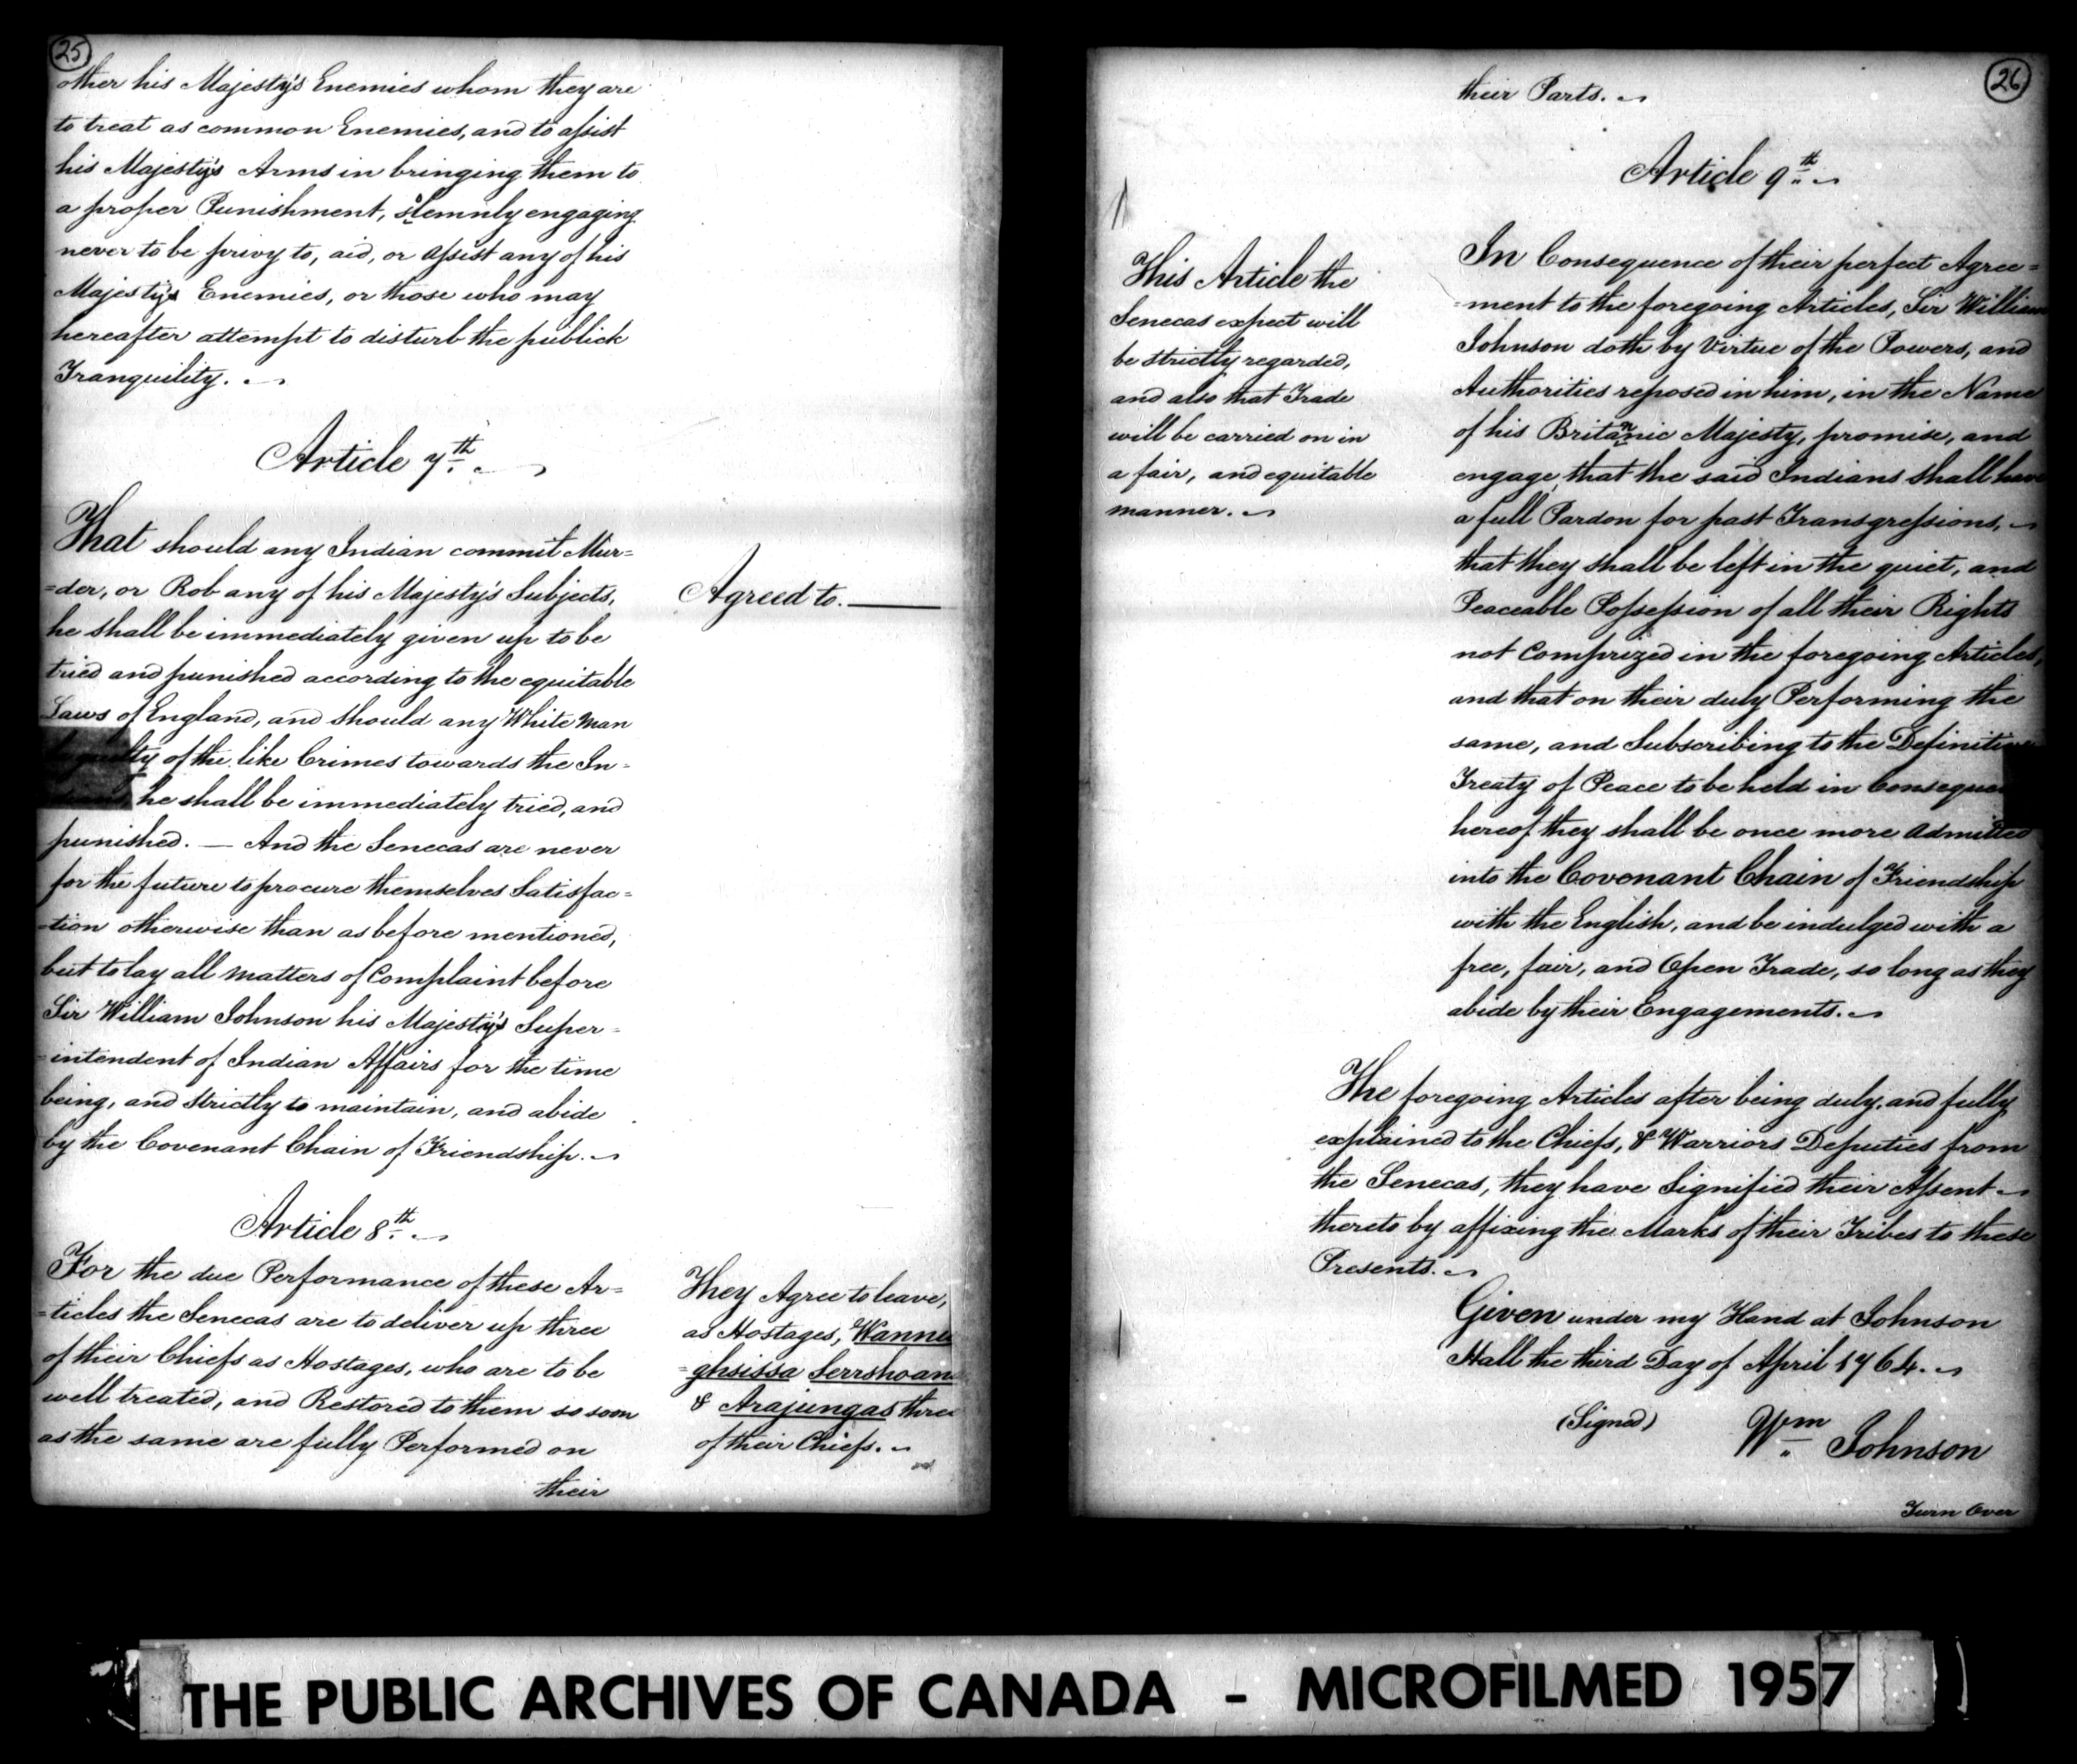 25
other his Majesty's Enemies whom they are
to treat as common Enemies, and to assist
his Majesty's Arms in bringing them to
a proper Punishment, solemnly engaging
never to be privy to, aid, or Assist any of his
Majesty's Enemies, or those who may
hereafter attempt to disturb the publick
Tranquility.
Article 7th.
That should any Indian commit Mur=
=der, or Rob any of his Majesty's Subjects,
he shall be immediately given up to be
tried and punished according to the equitable
Laws of England, and should any White Man
be guilty of the like Crimes towards the In=
he shall be immediately tried, and
punished. — And the Senecas are never
for the future to procure themselves Satisfac=
=tion otherwise than as before mentioned,
but to lay all Matters of Complaint before
Sir William Johnson his Majesty's Super=
=intendent of Indian Affairs for the time
being, and Strictly to maintain, and abide
by the Covenant Chain of Friendship.
Agreed to.
Article 8th.
For the due Performance of these Ar=
=ticles the Senecas are to deliver up three
of their Chiefs as Hostages, who are to be
well treated, and Restored to them so soon
as the same are fully Performed on
their
They Agree to leave,
as Hostages, Wannu
=ghsissa Serrshoan
& Arajungas three
of their Chiefs.
26
their Parts.
Article 9th.
This Article the
Senecas expect will
be strictly regarded,
and also that Trade
will be carried on in
a fair, and equitable
manner.
In Consequence of their perfect Agree=
=ment to the foregoing Articles, Sir William
Johnson doth by Virtue of the Powers, and
Authorities reposed in him, in the Name
of his Britannic Majesty, promise, and
engage that the said Indians shall have
a full Pardon for past Transgressions,
that they shall be left in the quiet, and
Peaceable Possession of all their Rights
not Comprized in the foregoing Articles,
and that on their duly Performing the
same, and Subscribing to the Definitive
Treaty of Peace to be held in Consequen
hereof they shall be once more Admitted
into the Covenant Chain of Friendship
with the English, and be indulged with a
free, fair, and Open Trade, so long as they
abide by their Engagements.
The foregoing Articles after being duly, and fully
explained to the Chiefs, & Warriors Deputies from
the Senecas, they have Signified their Assent
thereto by affixing the Marks of their Tribes to these
Presents.
Given under my Hand at Johnson
Hall the third Day of April 1764.
(Signed) Wm Johnson
Turn Over
THE PUBLIC ARCHIVES OF CANADA - MICROFILMED 1957